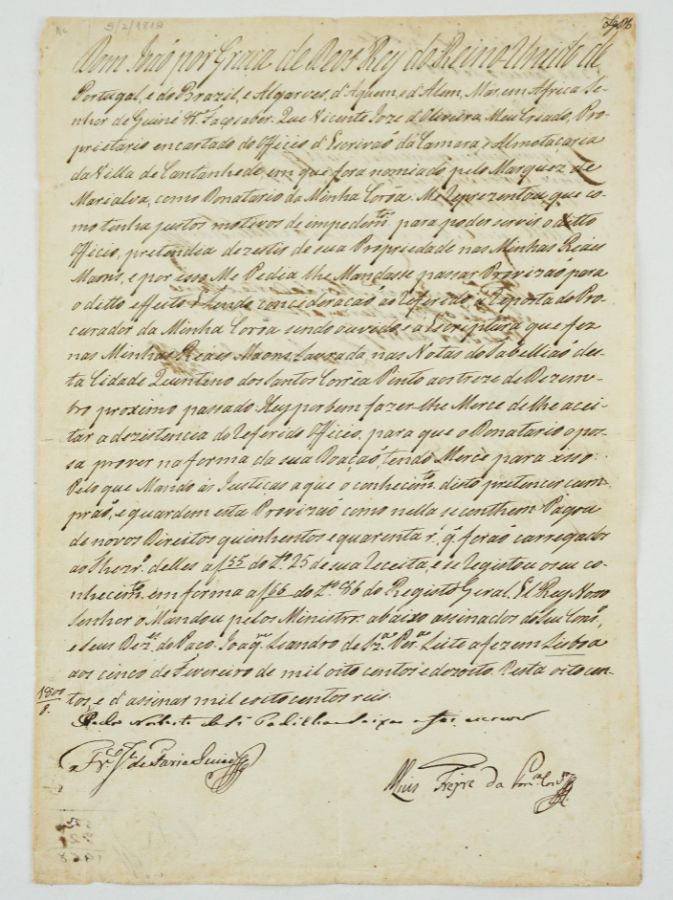 5/2/1818
Dom João por Graça de Deos Rey do Reino Unido de
Portugal, e do Brazil, e Algarves, d'Aquem, e d'Alem, Mar, em Africa Se-
nhor de Guiné &. Faço saber. Que Vicente Joze d'Oliveira Meu Criado, Pro-
prietario encartado do Officio d'Escrivaõ da Camara, e Almotaçaria
da Villa de Cantanhede em que fora nomiado pelo Marquez de
Marialva, como Donatario da Minha Corôa: Me Reprezentou que co-
mo tenha justos motivos de impedim.to para poder servir o ditto
Officio, pretendia dezestir de sua Propriedade nas Minhas Reaes
Maons, e por isso Me Pedia lhe Mandasse passar Provizaõ para
o ditto effeito. E Tendo concideracaõ ao Referido, a Reposta do Pro-
curador da Minha Corôa sendo ouvido, e a Escriptura que fez
nas Minhas Reaes Maons Lavrada nas Notas do Tabelliaõ des-
ta Cidade Quintino dos Santos Corrêa Pinto aos treze de Dezem-
bro proximo passado. Hey por bem fazer-lhe Merce de lhe acei-
tar a dezistencia do Referido Officio, para que o Donatario o pos-
sa prover na forma da sua Doaçaõ, tendo Merce para isso:
Pelo que Mando ás Justicas a que o conhecim.to disto pretencer cum-
praõ, e guardem esta Provizaõ como nella se conthem. Pagou
de novos Direitos quinhentos e quarenta r.s q. foraõ carregados
ao Thezr.o delles a f 55 do L.o 25 de sua Receita, e se Registou o seu co-
nhecim.to em forma a f 66 do L.o 86 do Registo Geral. El Rey Nosso
Senhor o Mandou pelos Ministr.os abaixo assinados do Seu Cons.o
e Seus Dez.es do Paço. Joaq.m Leandro de Per.a Leite a fez em Lisboa
aos cinco de Fevereiro de mil oito centos e dezoito. Desta oito cen-
tos, e d'assinar mil e oito centos reis.
1800
Pedro Norberto de Padilha e Seixas a fez escrever
Fr.co Je. de Faria
Luis Freire da